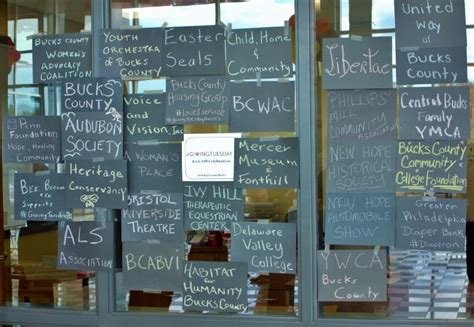 Bucks County
Women's
Advocacy
Coalition
Youth
Orchestra
of Bucks
County
Easter
Seals
Child, Home
&
Community
Libertae
United
Way of
Bucks
County
Bucks
County
Audubon
Society
Voice
and
Vision, Inc
Bucks County
Housing Group
BCWAC
Phillips'
Mill
Community
Central Bucks
Family
YMCA
Penn
Foundation
Hope · Healing
Community
A Woman's
Place
#GIVINGTUESDAY
Kick-Off Celebration
Mercer
Museum
&
Fonthill
New Hope
Historical
Society
Bucks County
Community
College Foundation
Supports
#GivingTuesday
Heritage
Conservancy
Bristol
Riverside
Theatre
Ivy Hill
Therapeutic
Equestrian
Center
Delaware
Valley
College
New Hope
Automobile
Show
Greater
Philadelphia
Diaper Bank
ALS
Association
BCABVI
Habitat
for
Humanity
Bucks County
YWCA
Bucks
County